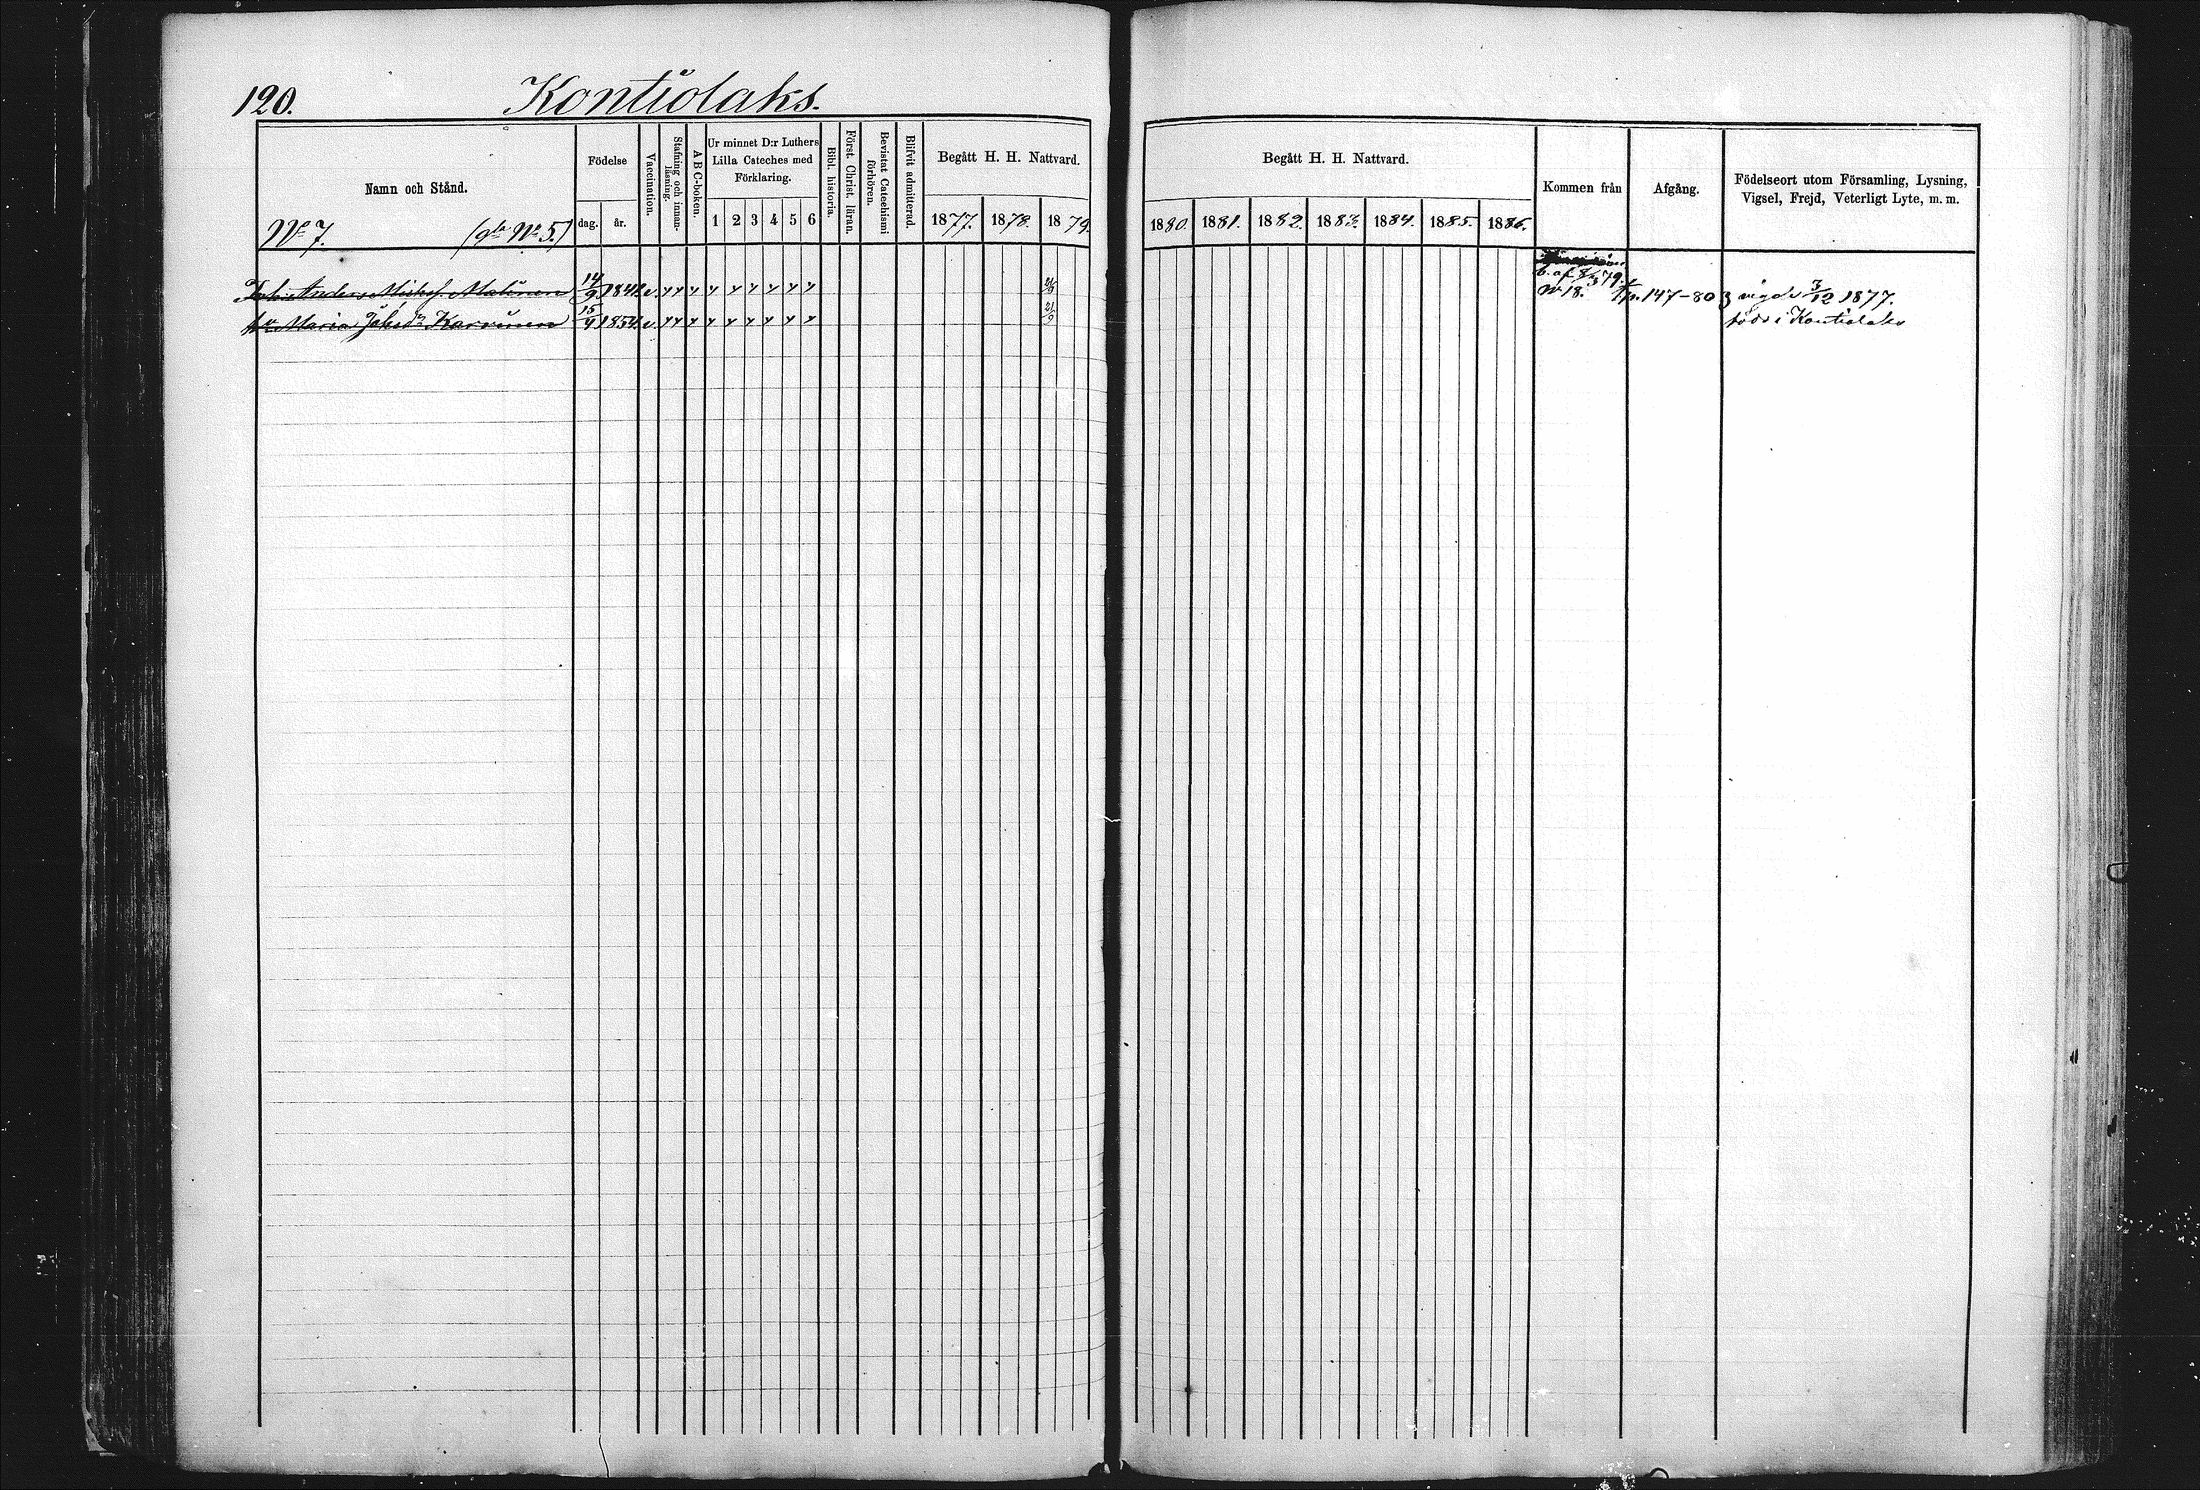 120. Kontiolaks.
Namn och Stånd.
Nº 7. (gla Nº 5.)
Födelse
dag. år.
Vaccination.
Stafning och innanläsning.
A B C-boken.
Ur minnet D:r Luthers
Lilla Cateches med
Förklaring.
1 2 3 4 5 6
Bibl. historia.
Först. Christ. läran.
Bevistat Catechismi förhören.
Blifvit admitterad.
Begått H. H. Nattvard.
1877. 1878. 1879.
Begått H. H. Nattvard.
1880. 1881. 1882. 1883. 1884. 1885. 1886.
Kommen från
Afgång.
Födelseort utom Församling, Lysning,
Vigsel, Frejd, Veterligt Lyte, m. m.
Anders Michelss. Malinen 14/9 184 v. 21/9
b. af 8/3 79.
Nº 18.
p. 147-80 vigda 3/12 1877.
Maria Jakobsdr Karvinen 15/4 1854 v. 21/9
född i Kontiolaks